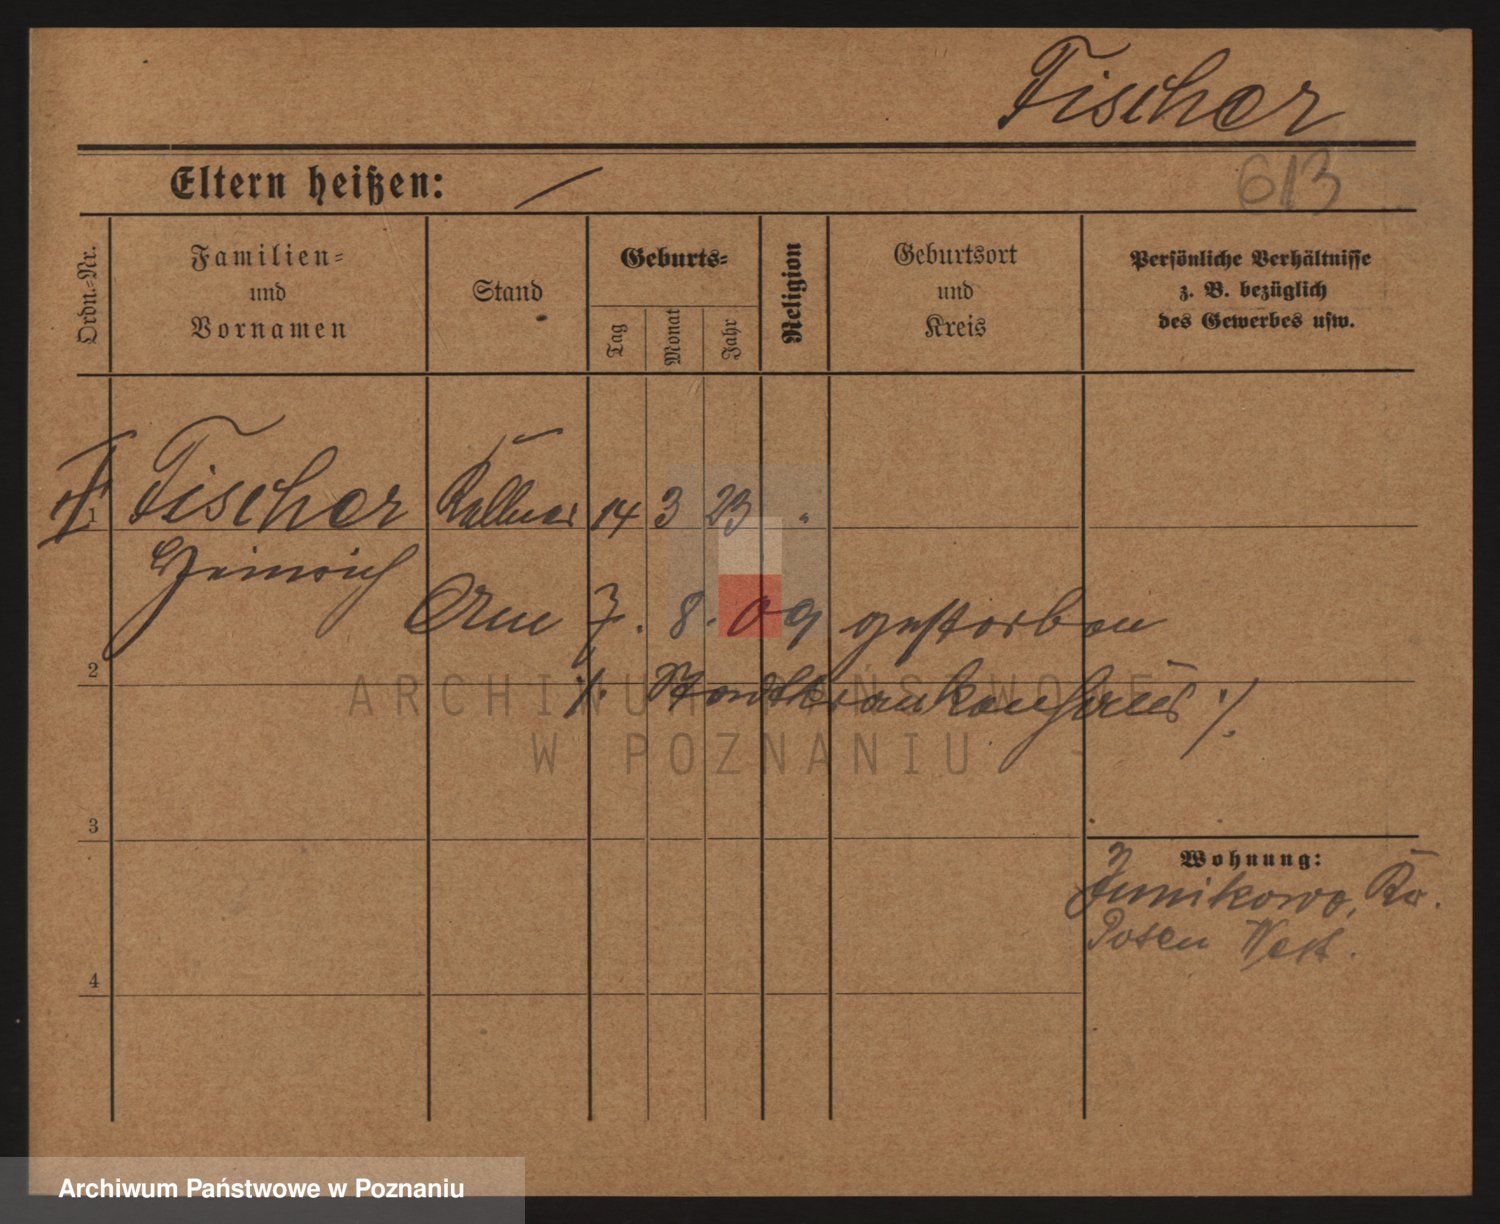 Fischer
613
Eltern heißen: /
Ordn.-Nr.
Familien- und Vornamen
Stand
Geburts-
Tag
Monat
Jahr
Religion
Geburtsort und Kreis
Persönliche Verhältnisse
z. B. bezüglich
des Gewerbes usw.
1 Fischer Kellner 14 3 23 "
Heinrich
Am 7. 8. 09 gestorben
2
·/. Stadtkrankenhaus ·/.
3
Wohnung:
Junikowo, Kr.
Posen West.
4
ARCHIWUM PAŃSTWOWE
W POZNANIU
Archiwum Państwowe w Poznaniu